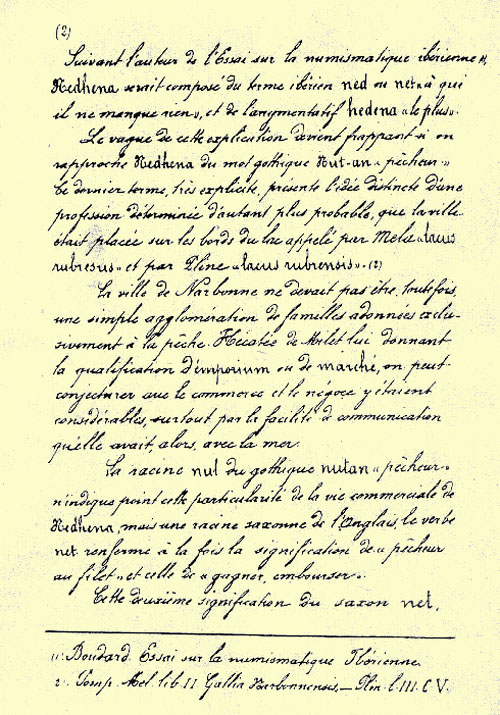 (2)
Suivant l'auteur de l'Essai sur la numismatique ibérienne (1),
Nedhena serait composé du terme ibérien ned ou net «à qui
il ne manque rien», et de l'augmentatif hedena «le plus».
Le vague de cette explication devient frappant si on
rapproche Nedhena du mot gothique Nut-an «pêcheur»
Ce dernier terme, très explicite, présente l'idée distincte d'une
profession déterminée d'autant plus probable, que la ville
était placée sur les bords du lac appelé par Mela «lacus
rubresus» et par Pline «lacus rubrensis». (2)
La ville de Narbonne ne devait pas être, toutefois,
une simple agglomération de familles adonnées exclu-
sivement à la pêche. Hécatée de Milet lui donnant
la qualification d'emporium ou de marché, on peut
conjecturer que le commerce et le négoce y étaient
considérables, surtout par la facilité de communication
qu'elle avait, alors, avec la mer.
La racine nut du gothique nutan «pêcheur»
n'indique point cette particularité de la vie commerciale de
Nedhena, mais une racine saxonne de l'Anglais, le verbe
net renferme à la fois la signification de «pêcher
au filet» et celle de «gagner, embourser».
Cette deuxième signification du saxon net,
1. Boudard. Essai sur la numismatique Ibérienne.
2. Pomp. Mel. lib. II Gallia Narbonnensis. — Plin. l. III. C. V.